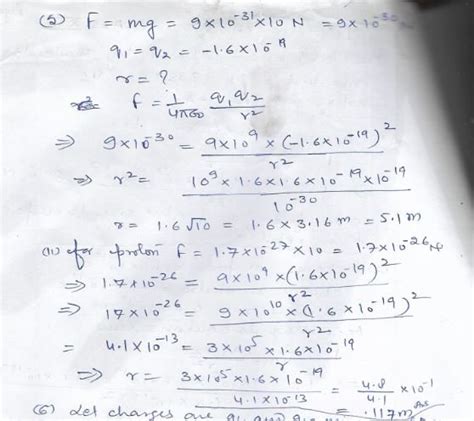 (5) F = mg = 9×10⁻³¹×10 N = 9×10⁻³⁰
q₁ = q₂ = -1.6×10⁻¹⁹
r = ?
F = 1/4πε₀ q₁q₂/r²
⇒ 9×10⁻³⁰ = 9×10⁹ × (-1.6×10⁻¹⁹)²/r²
⇒ r² = 10⁹×1.6×1.6×10⁻¹⁹×10⁻¹⁹/10⁻³⁰
r = 1.6√10 = 1.6×3.16 m = 5.1 m
(ii) for proton F = 1.7×10⁻²⁷×10 = 1.7×10⁻²⁶ N
⇒ 1.7×10⁻²⁶ = 9×10⁹×(1.6×10⁻¹⁹)²/r²
⇒ 17×10⁻²⁶ = 9×10¹⁰×(1.6×10⁻¹⁹)²/r²
= 4.1×10⁻¹³ = 3×10⁵×1.6×10⁻¹⁹/r
⇒ r = 3×10⁵×1.6×10⁻¹⁹/4.1×10⁻¹³ = 4.8/4.1 ×10⁻¹
= .117m Ans
(6) Let charges are q₁ and q₂